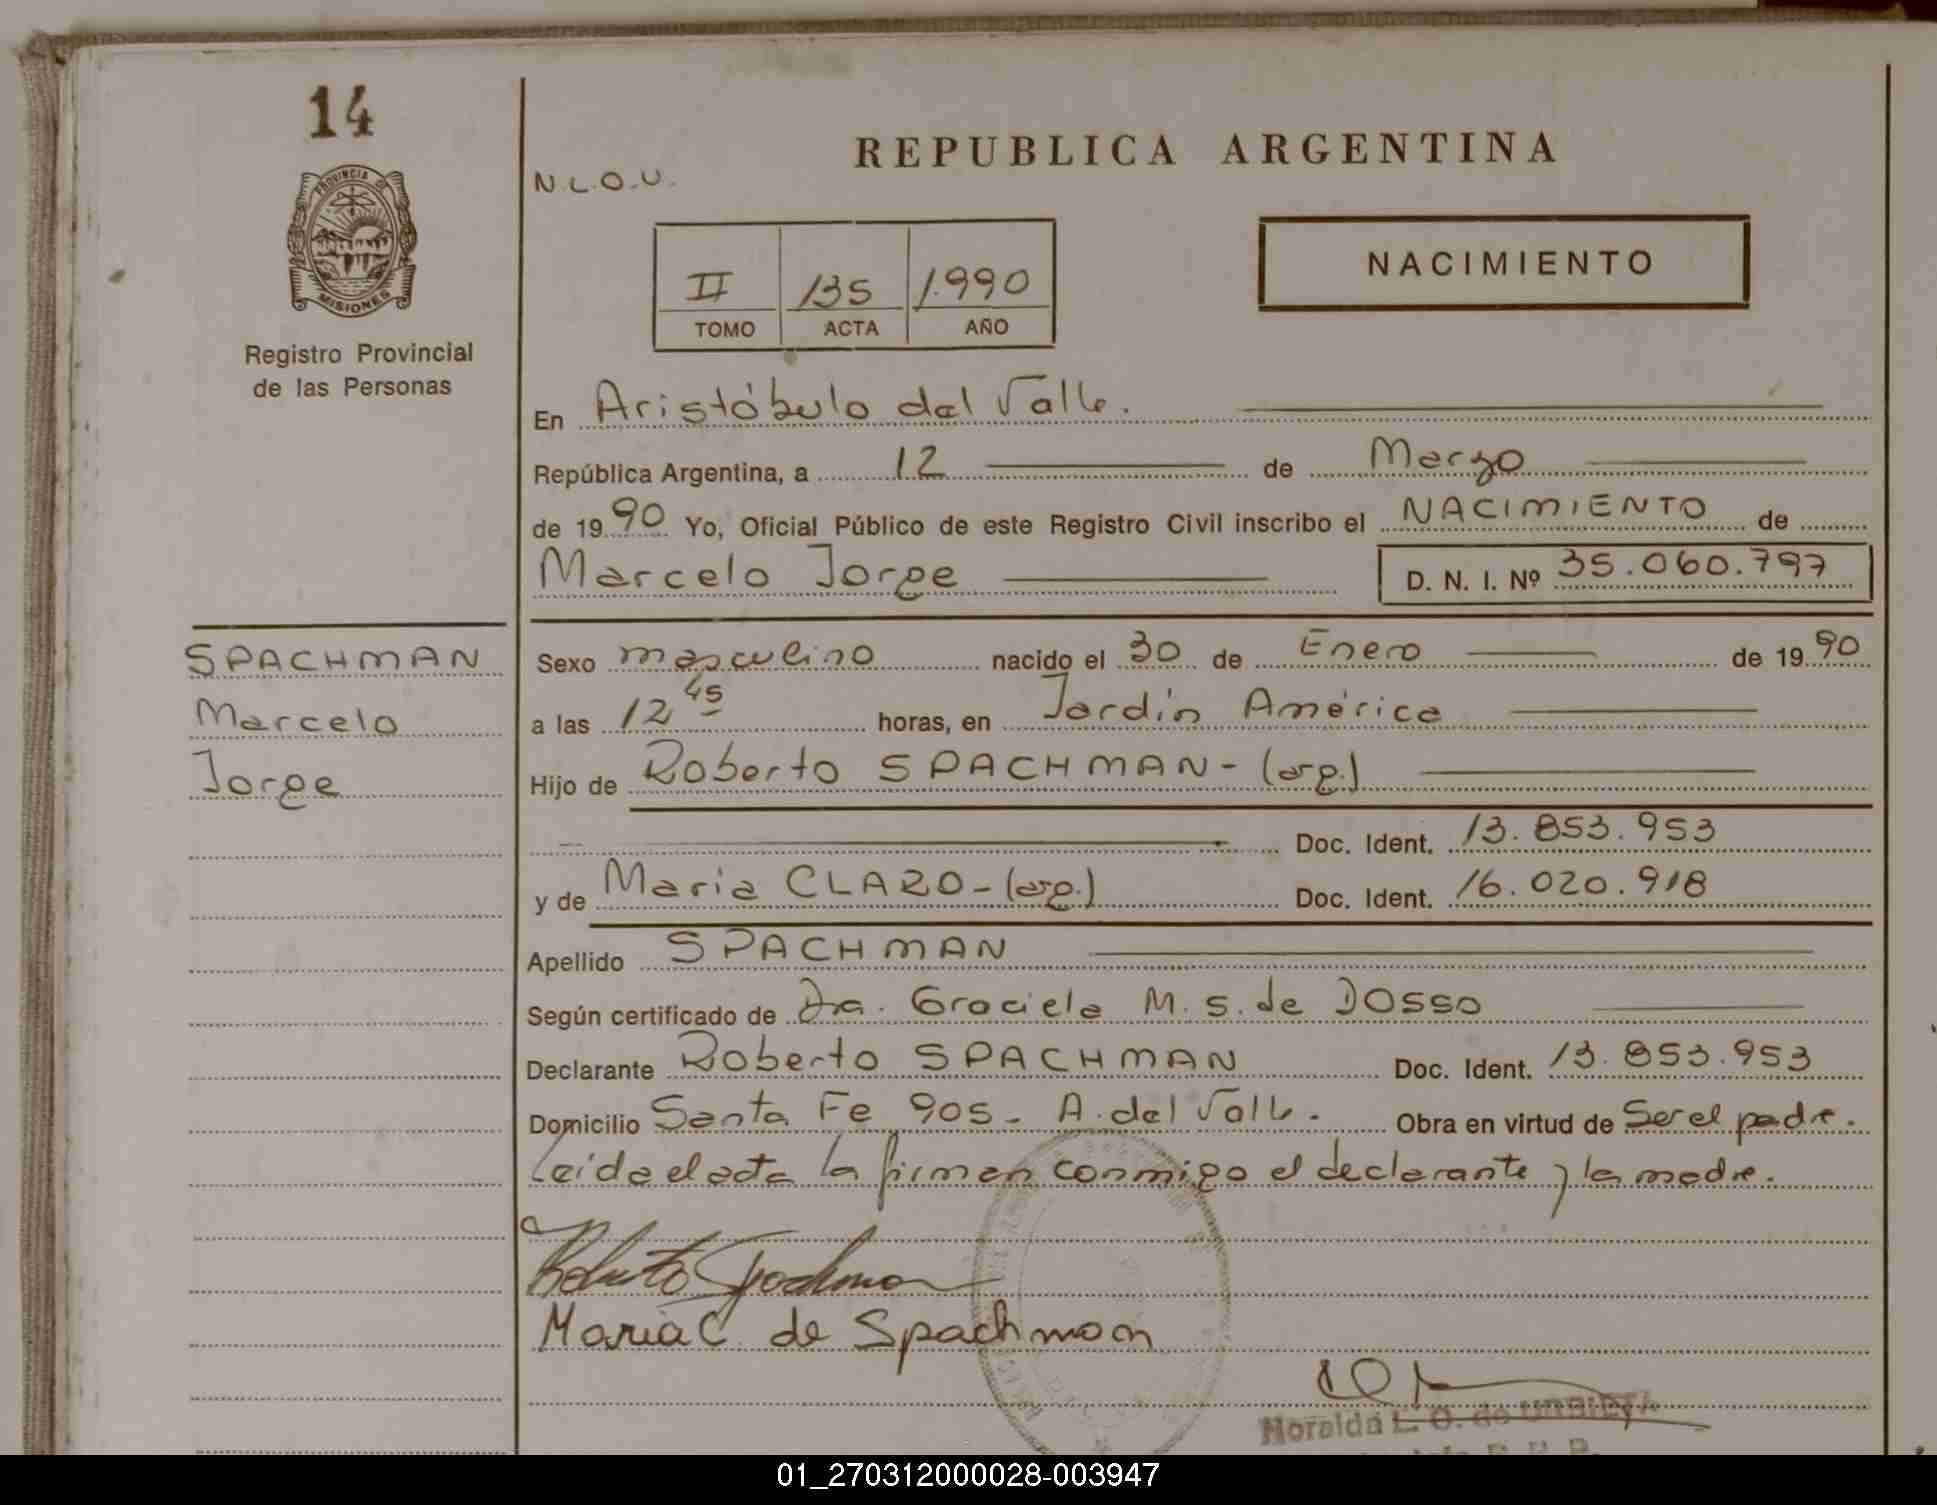 14
PROVINCIA DE
MISIONES
Registro Provincial
de las Personas
SPACHMAN
Marcelo
Jorge
REPUBLICA ARGENTINA
N.L.O.U.
NACIMIENTO
II 135 1.990
TOMO ACTA AÑO
En Aristóbulo del Valle.
República Argentina, a 12 de Marzo
de 1990 Yo, Oficial Público de este Registro Civil inscribo el NACIMIENTO de
Marcelo Jorge D. N. I. Nº 35.060.797
Sexo masculino nacido el 30 de Enero de 1990
a las 12 45 horas, en Jardín América
Hijo de Roberto SPACHMAN - (arg.)
Doc. Ident. 13.853.953
y de Maria CLARO - (arg.) Doc. Ident. 16.020.918
Apellido SPACHMAN
Según certificado de Dra. Graciela M. S. de DOSSO
Declarante Roberto SPACHMAN Doc. Ident. 13.853.953
Domicilio Santa Fe 905 - A. del Valle. Obra en virtud de Ser el padre.
Leida el acta la firman conmigo el declarante y la madre.
Roberto Spachman
Maria C. de Spachman
Noralda L. O. de URBIETA
01_270312000028-003947